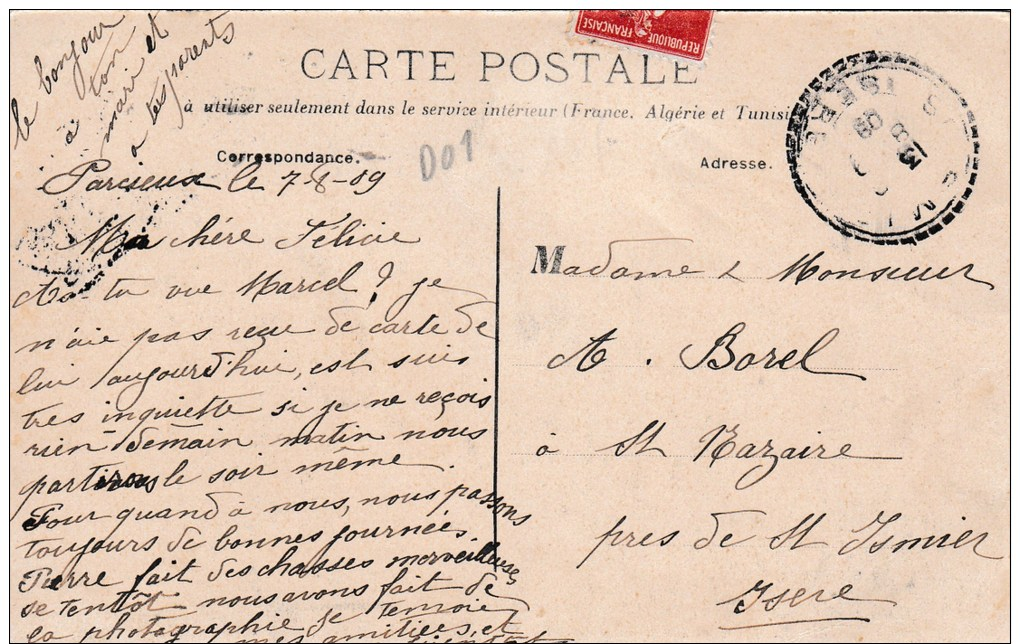 le bonjour
à ton
mari et
a tes parents
REPUBLIQUE FRANÇAISE
CARTE POSTALE
à utiliser seulement dans le service intérieur (France, Algérie et Tunisi
Correspondance.
D01
Adresse.
ISERE
Parcieux le 7-8-09
Ma chére Félicie
As tu vue Marcel? je
n'aie pas reçue de carte de
lui aujourd'hui, est suis
tres inquiette si je ne reçois
rien demain matin nous
partirons le soir même.
Pour quand à nous, nous passons
toujours de bonnes journées.
Pierre fait des chasses merveilleuses
se tentôt nous avons fait de
la photographie je
mes amitiées, et
Madame & Monsieur
A. Borel
à St Nazaire
pres de St Ismier
Isere